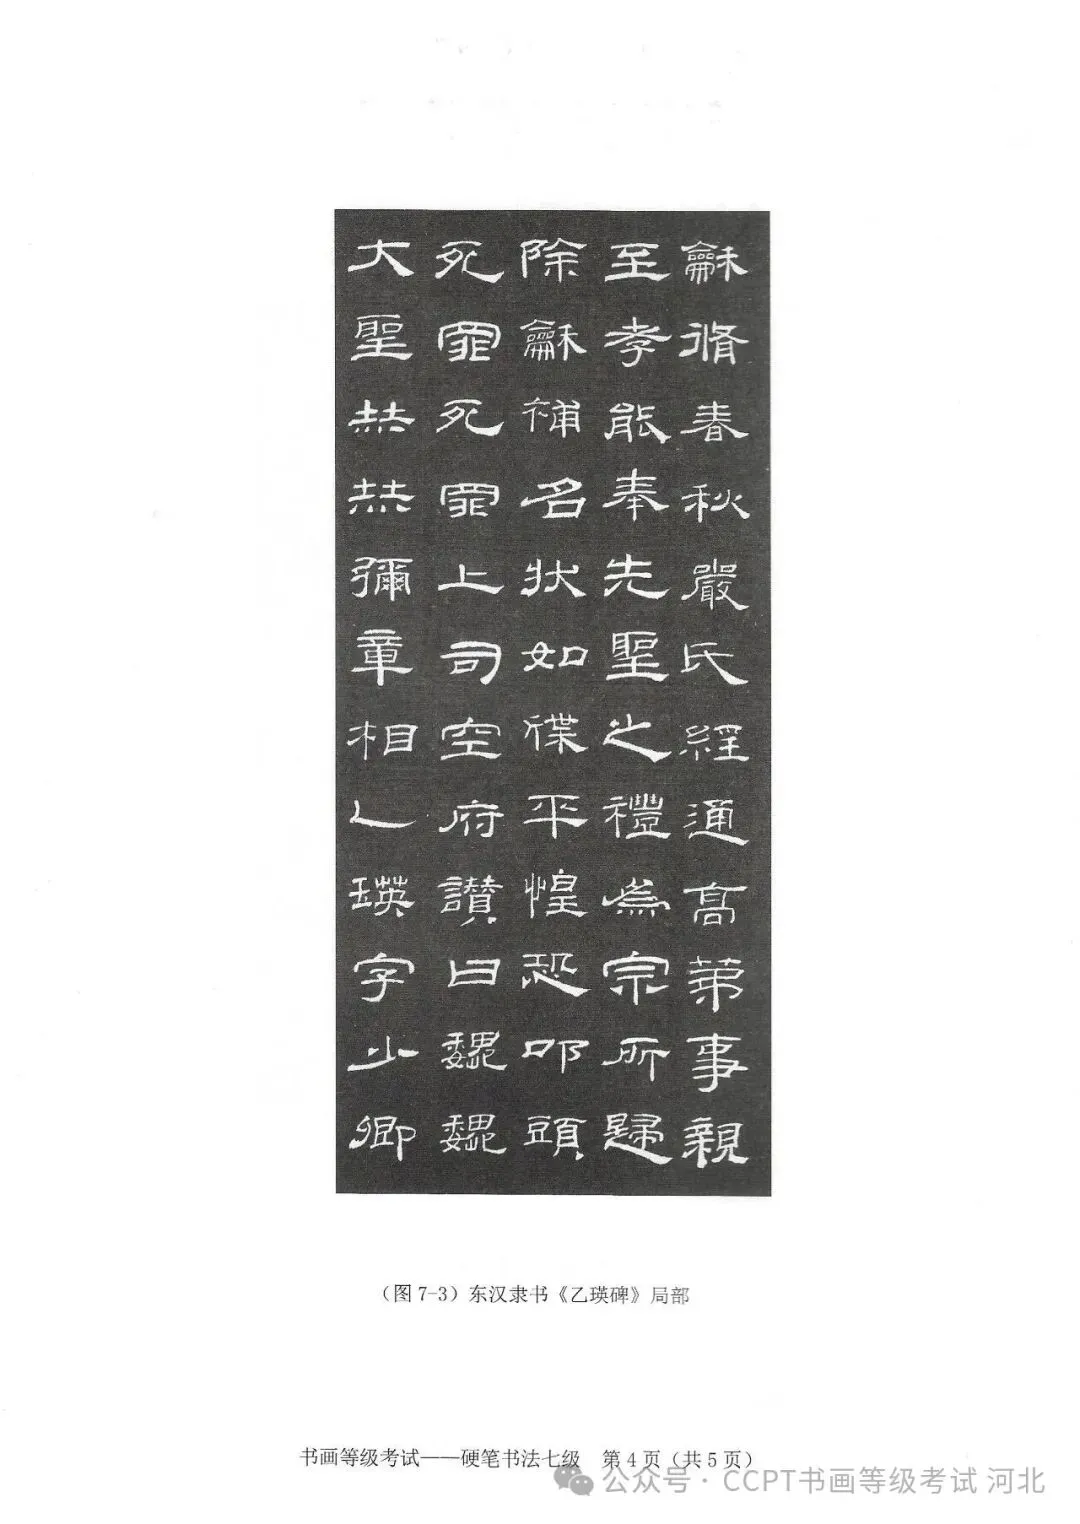 龢脩春秋嚴氏經通高第事親
至孝能奉先聖之禮為宗所歸
除龢補名狀如牒平惶恐叩頭
死罪死罪上司空府讚曰巍巍
大聖赫赫彌章相乙瑛字少卿
（图 7-3）东汉隶书《乙瑛碑》局部
书画等级考试——硬笔书法七级 第 4 页（共 5 页）
公众号 · CCPT书画等级考试 河北